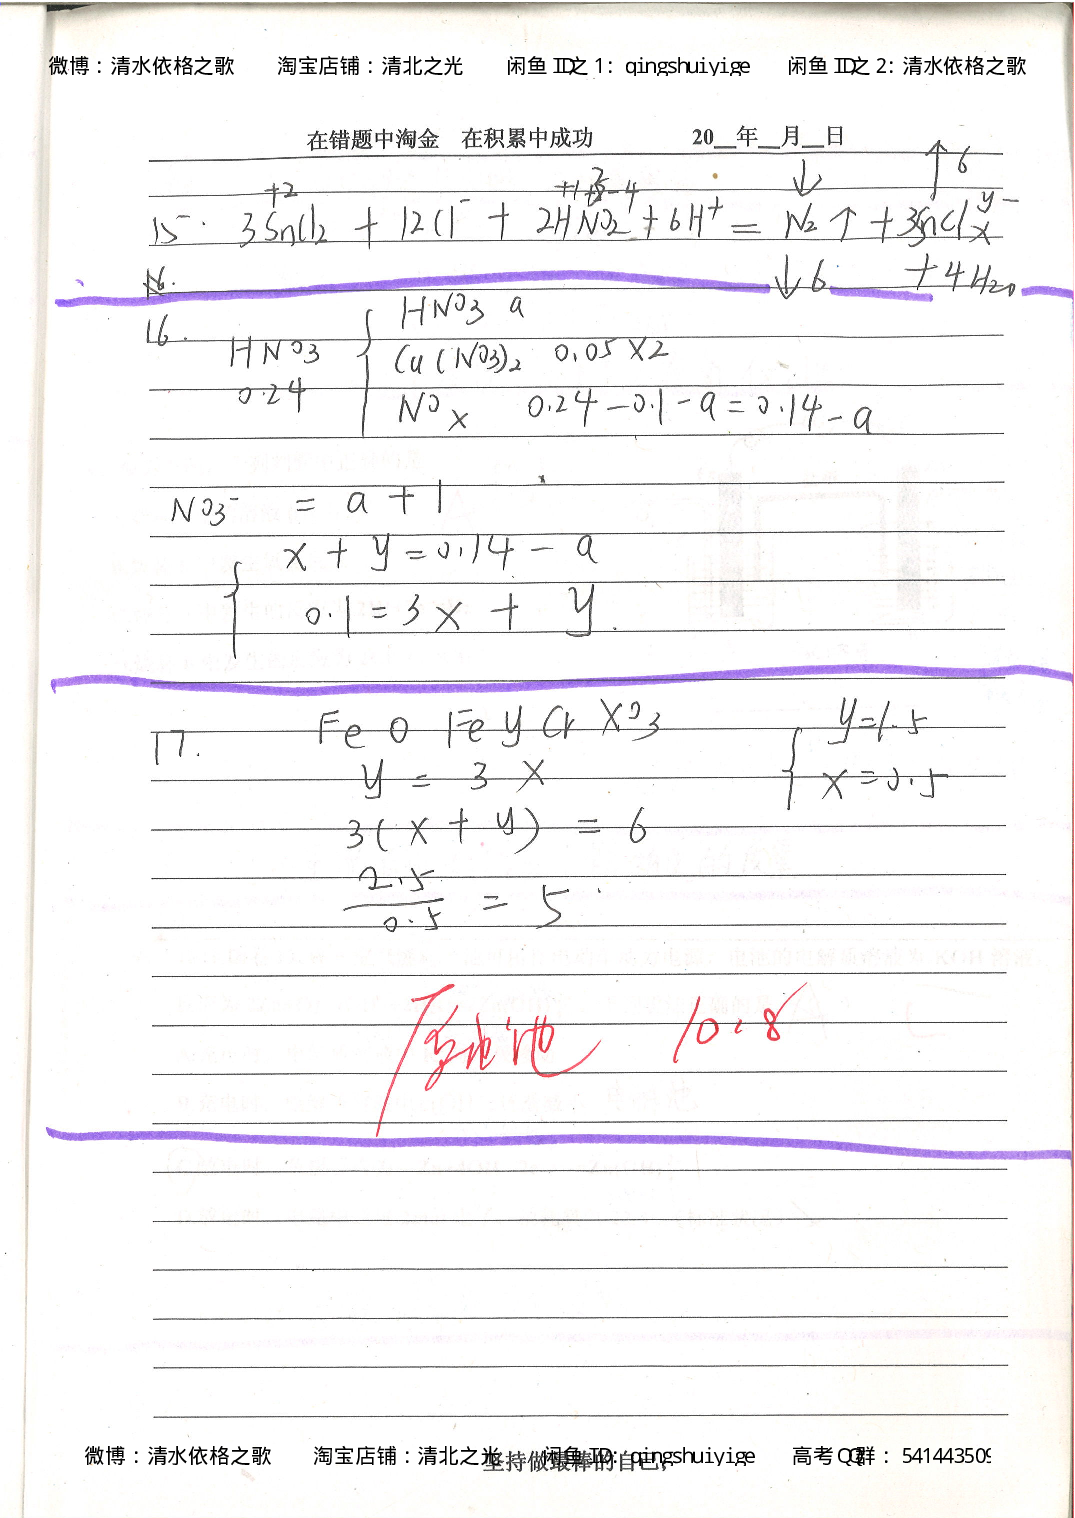 微博：清水依格之歌 淘宝店铺：清北之光 闲鱼 ID之 1: qingshuiyige 闲鱼 ID之 2: 清水依格之歌
在错题中淘金 在积累中成功 20__年__月__日
+2 ↓ ↑6
15. 3SnCl2 + 12Cl⁻ + 2HNO2 + 6H⁺ = N2↑ + 3SnClx^y⁻
↓6 + 4H2O
16. HNO3 0.24 { HNO3 a
Cu(NO3)2 0.05×2
NOx 0.24-0.1-a=0.14-a
NO3⁻ = a+1
{ x+y=0.14-a
0.1=3x+y
17. FeO FeyCrxO3 { y=1.5
y = 3x x=0.5
3(x+y) = 6
2.5/0.5 = 5
原电池 10.8
微博：清水依格之歌 淘宝店铺：清北之光 闲鱼 ID: qingshuiyige 高考QQ群：541443509
坚持做最棒的自己